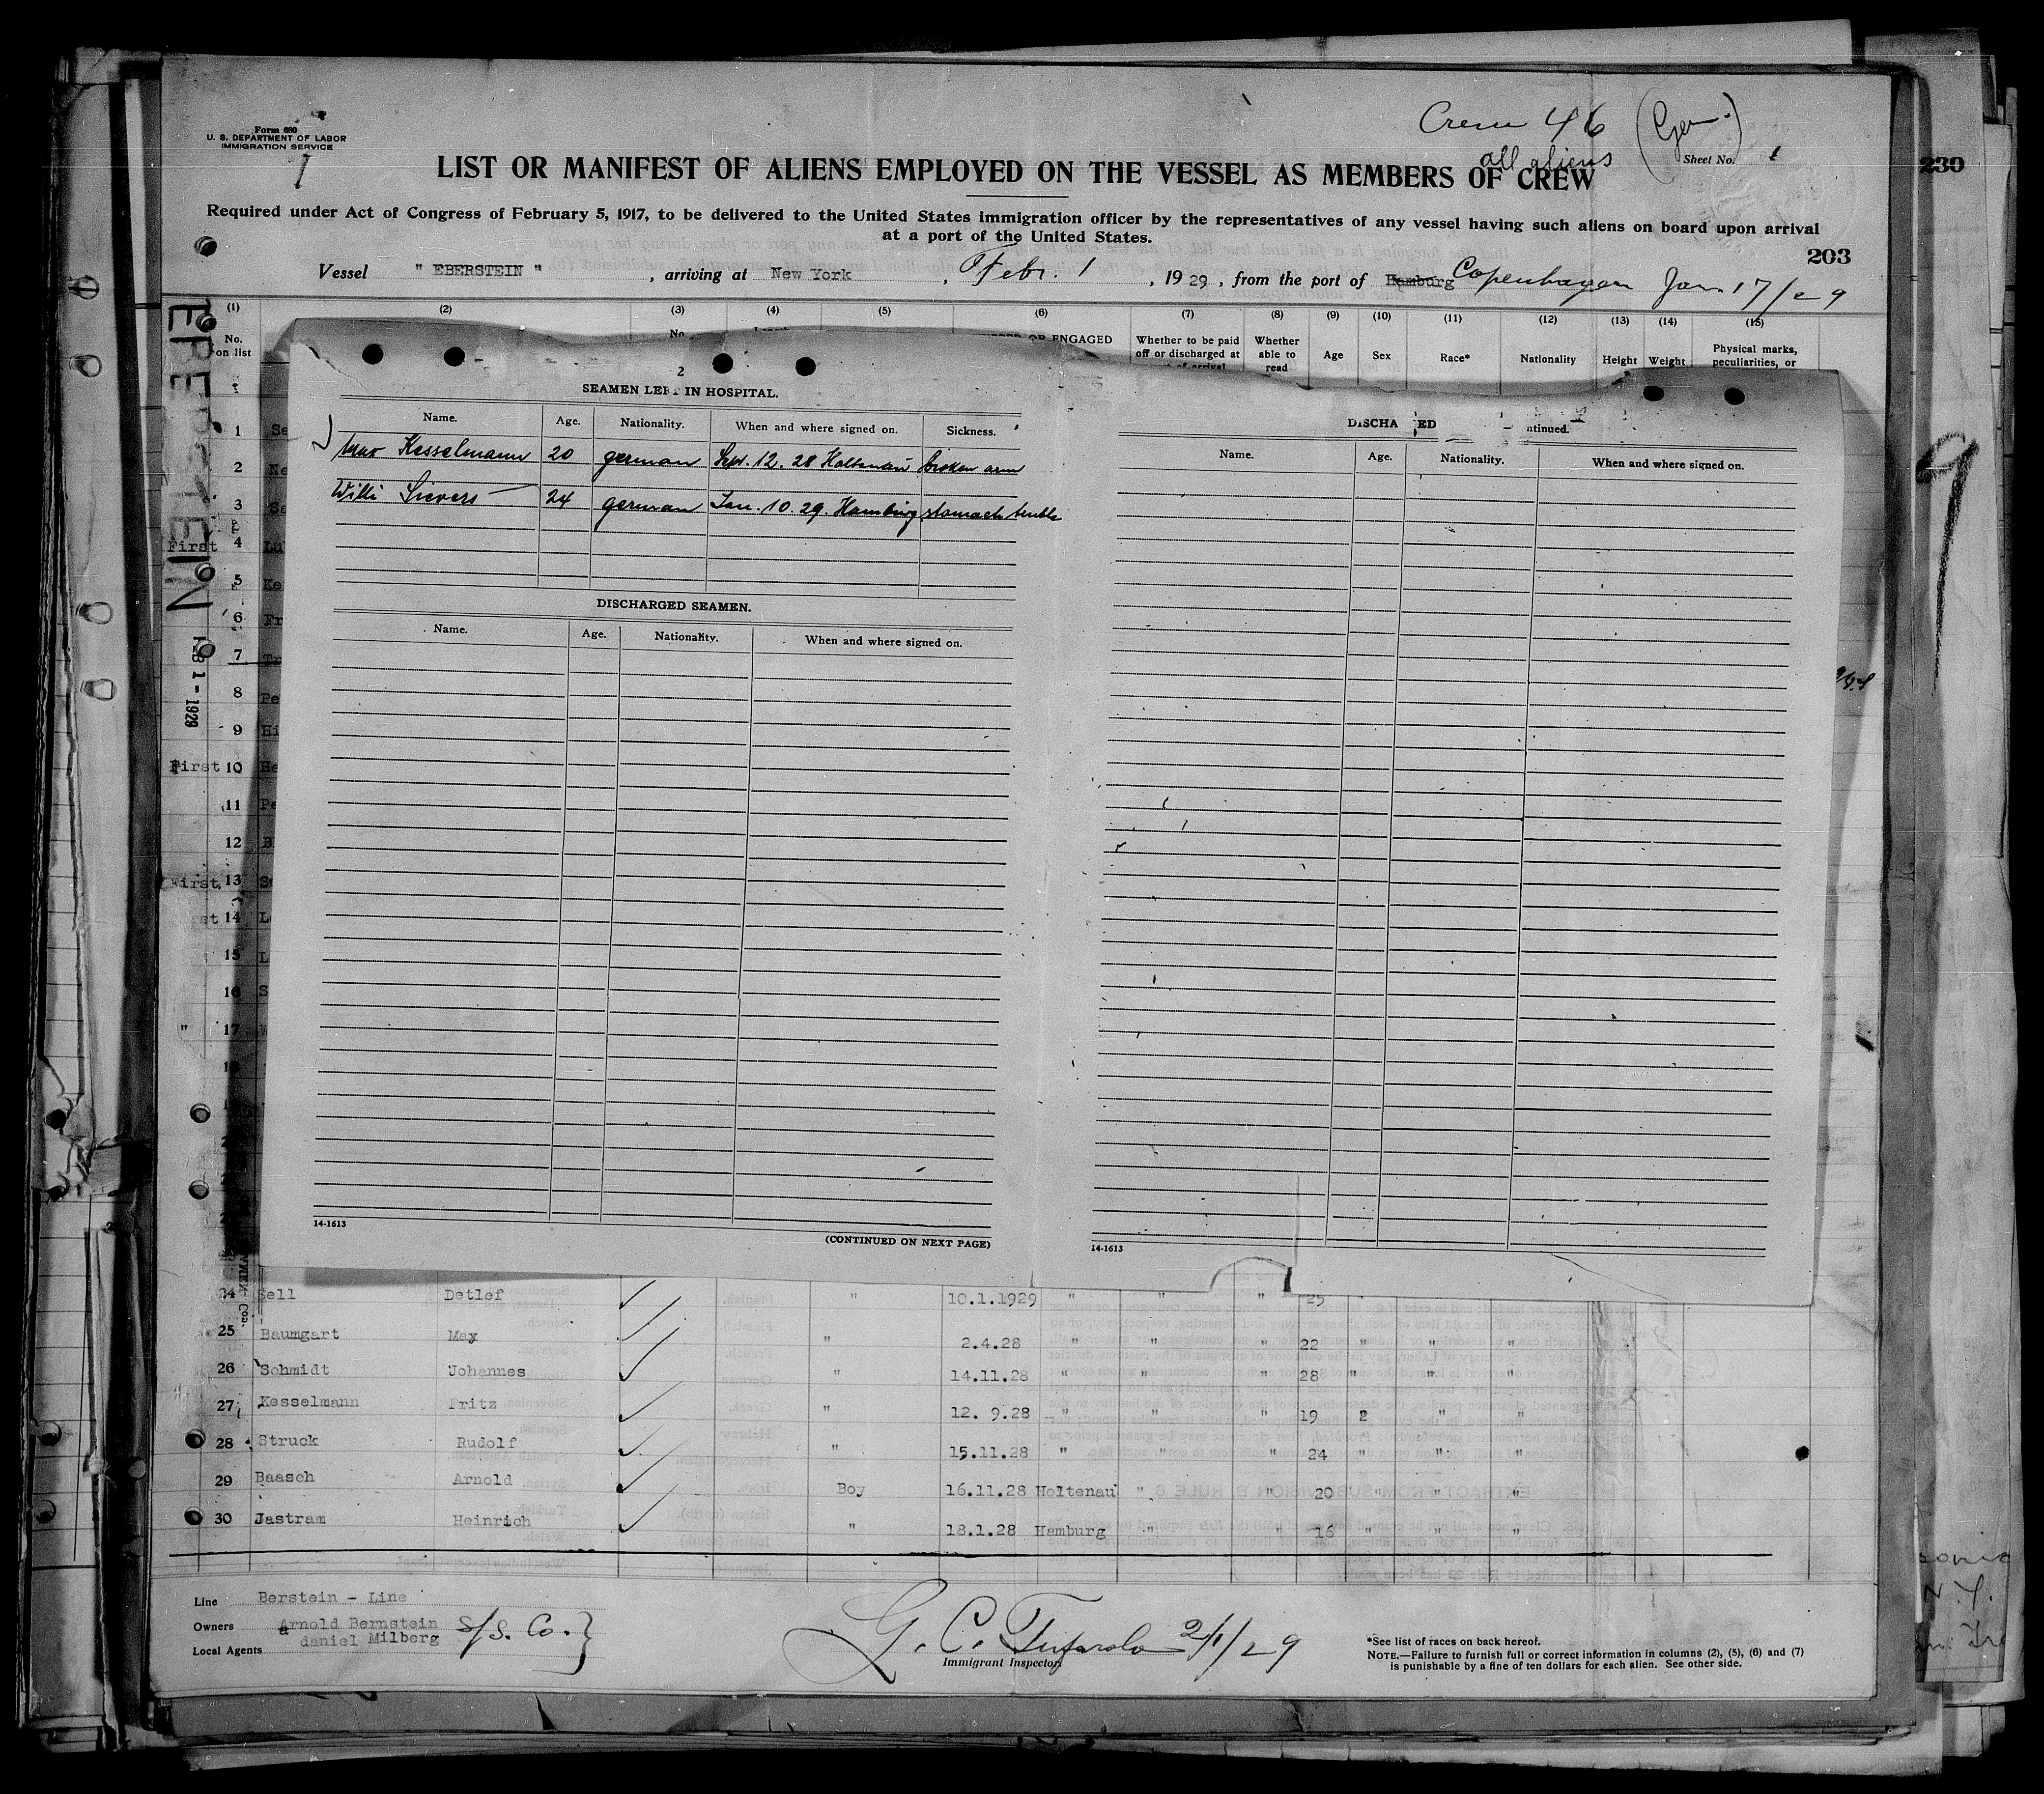 Form 680
U. S. DEPARTMENT OF LABOR
IMMIGRATION SERVICE
Crew 46 (Ger.)
all aliens
Sheet No. 1
LIST OR MANIFEST OF ALIENS EMPLOYED ON THE VESSEL AS MEMBERS OF CREW
230
Required under Act of Congress of February 5, 1917, to be delivered to the United States immigration officer by the representatives of any vessel having such aliens on board upon arrival
at a port of the United States.
203
Vessel " EBERSTEIN " , arriving at New York , Febr. 1 , 1929 , from the port of Hamburg Copenhagen Jan. 17/29
(1) (2) (3) (4) (5) (6) (7) (8) (9) (10) (11) (12) (13) (14) (15)
No. on list
No.
OR ENGAGED
Whether to be paid off or discharged at
Whether able to read
Age
Sex
Race*
Nationality
Height
Weight
Physical marks, peculiarities, or
EBERSTEIN
1 - 1929
2
SEAMEN LEFT IN HOSPITAL.
Name. Age. Nationality. When and where signed on. Sickness.
Max Kesselmann 20 german Sept. 12. 28 Holtenau broken arm
Willi Sievers 24 german Jan. 10. 29. Hamburg stomach
DISCHARGED SEAMEN.
Name. Age. Nationality. When and where signed on.
14-1613
(CONTINUED ON NEXT PAGE)
DISCHA ED ntinued.
Name. Age. Nationality. When and where signed on.
14-1613
1
2
3
First 4
5
6
7
8
9
First 10
11
12
First 13
14
15
16
" 17
24 Sell Detlef " 10.1.1929 " " " 25 "
25 Baumgart Max " 2.4.28 " " " 22 " " "
26 Schmidt Johannes " 14.11.28 " " " 28 " " "
27 Kesselmann Fritz " 12. 9.28 " " " 19 " " "
28 Struck Rudolf " 15.11.28 " " " 24 " " "
29 Baasch Arnold Boy 16.11.28 Holtenau " " 20 " " "
30 Jastram Heinrich " 18.1.28 Hamburg " " 16 " " "
Line Berstein - Line
Owners Arnold Bernstein S/S. Co. }
Local Agents daniel Milberg
G. C. 2/1/29
Immigrant Inspector
*See list of races on back hereof.
NOTE.—Failure to furnish full or correct information in columns (2), (5), (6) and (7)
is punishable by a fine of ten dollars for each alien. See other side.